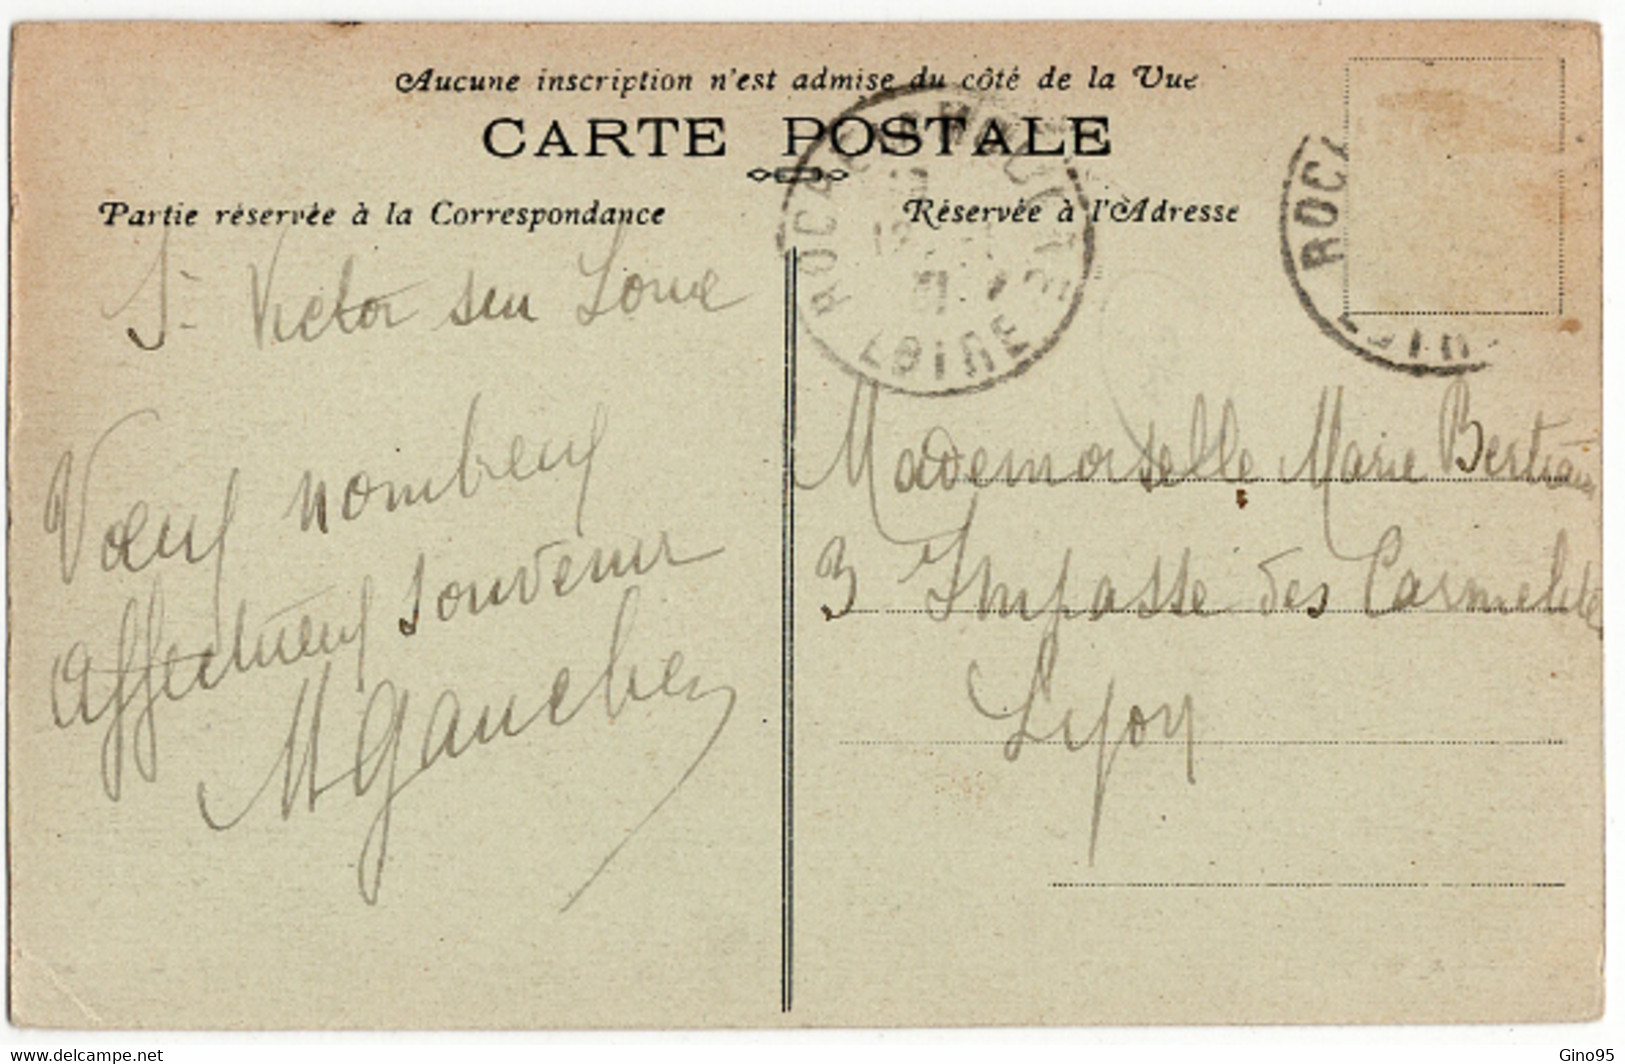 Aucune inscription n'est admise du côté de la Vue
CARTE POSTALE
Partie réservée à la Correspondance
Réservée à l'Adresse
St Victor sur Loire
Vœux nombreux
affectueux souvenir
M Gaucher
LOIRE
ROC
Mademoiselle Marie Bertrand
3 Impasse des Carmélites
Lyon
www.delcampe.net
Gino95